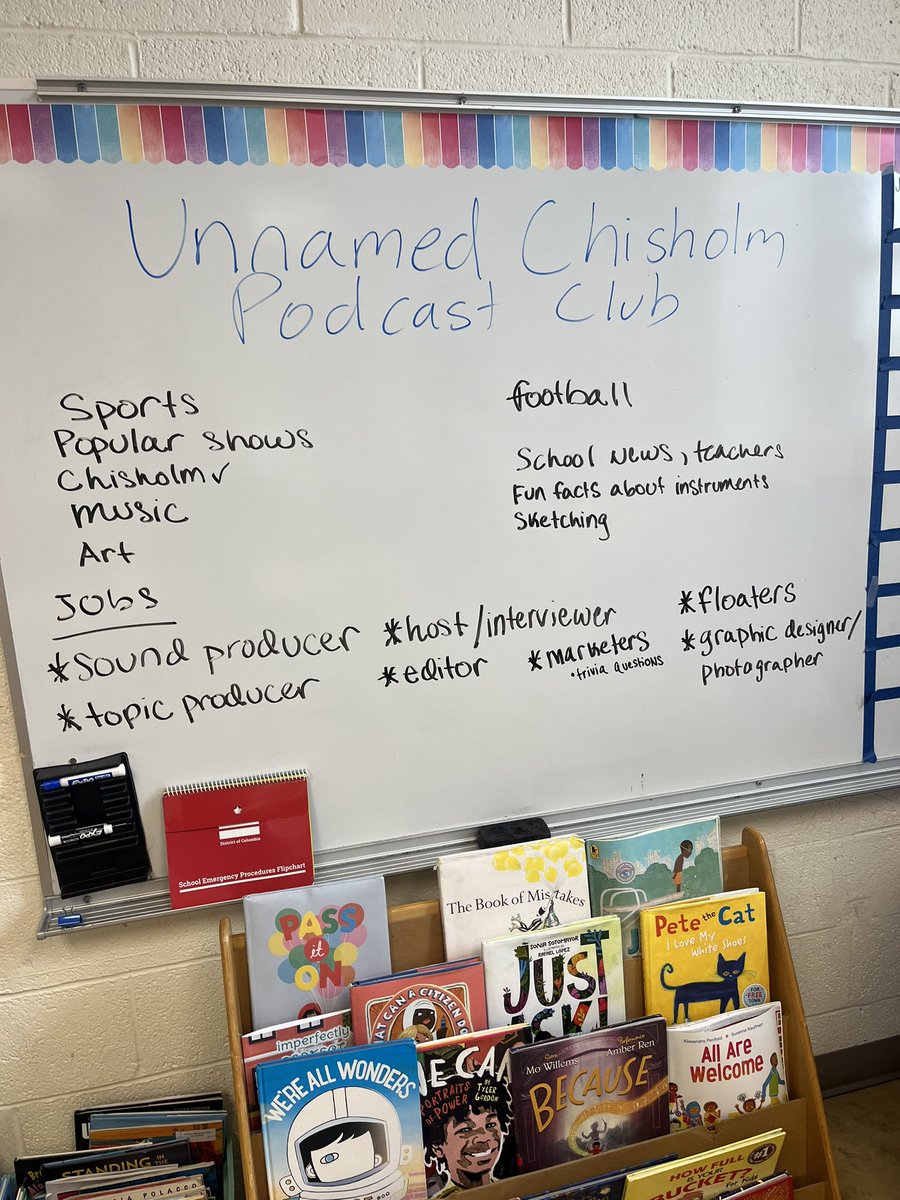 Unnamed Chisholm
Podcast Club
Sports
Popular shows
Chisholm ✓
music
Art
football
School News, teachers
Fun facts about instruments
Sketching
Jobs
*sound producer
*topic producer
*host/interviewer
*editor
*marketers
•trivia questions
*floaters
*graphic designer/
photographer
EXPO
District of Columbia
School Emergency Procedures Flipchart
PASS
it
ON
The Book of Mistakes
Pete the Cat
I Love My
White Shoes
FOR FREE
SONIA SOTOMAYOR
RAFAEL LÓPEZ
JUST
ASK!
WHAT CAN A CITIZEN DO
imperfectly
WE'RE ALL WONDERS
WE CAN
PORTRAITS
OF POWER
BY
TYLER
GORDON
Mo Willems
Amber Ren
BECAUSE
Alexandra Penfold • Suzanne Kaufman
All Are
Welcome
HOW FULL IS
YOUR
BUCKET?
For Kids
#1
STANDING IN
POLACCO